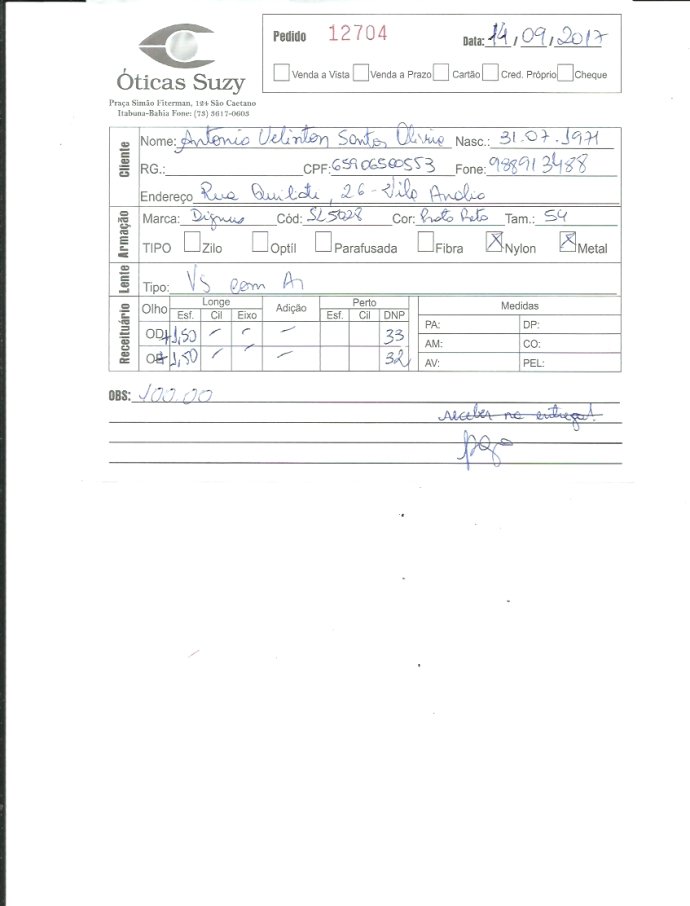 Pedido 12704 Data: 14,09,2017
Venda a Vista Venda a Prazo Cartão Cred. Próprio Cheque
Óticas Suzy
Praça Simão Fiterman, 124 São Caetano
Itabuna-Bahia Fone: (73) 3617-0603
Cliente
Nome: Antonio Velinton Santos Nasc.: 31.07.1971
RG.: CPF: 65906500553 Fone: 988913488
Endereço Rua, 26 - Vila
Armação
Marca: Dignus Cód: SL5028 Cor: Preto Preto Tam.: 54
TIPO Zilo Optíl Parafusada Fibra Nylon Metal
Lente
Tipo: VS com Ar
Receituário
Olho Longe Adição Perto Medidas
Esf. Cil Eixo Esf. Cil DNP
OD +1,50 - - - 33 PA: DP:
OE +1,50 - - - 32 AM: CO:
AV: PEL:
OBS: 100,00
receber na entrega!
pago